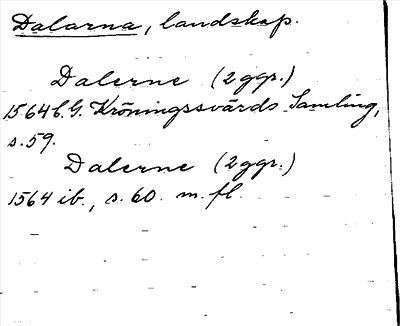 Dalarna, landskap.
Dalerne (2 ggr.)
1564 C. G. Kröningssvärds Samling,
s. 59.
Dalerne (2 ggr.)
1564 ib., s. 60. m. fl.